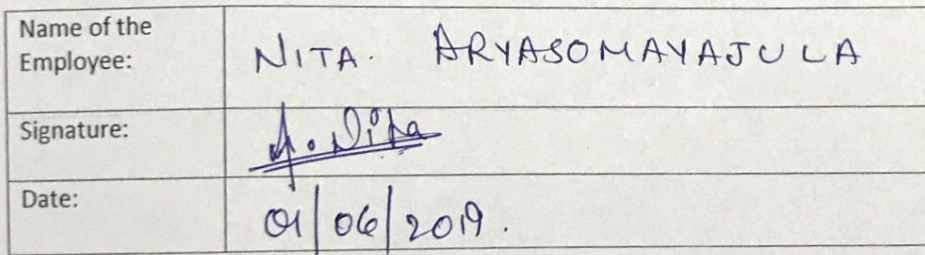 Name of the
Employee:
NITA. ARYASOMAYAJULA
Signature:
A. Nita
Date:
01/06/2019.